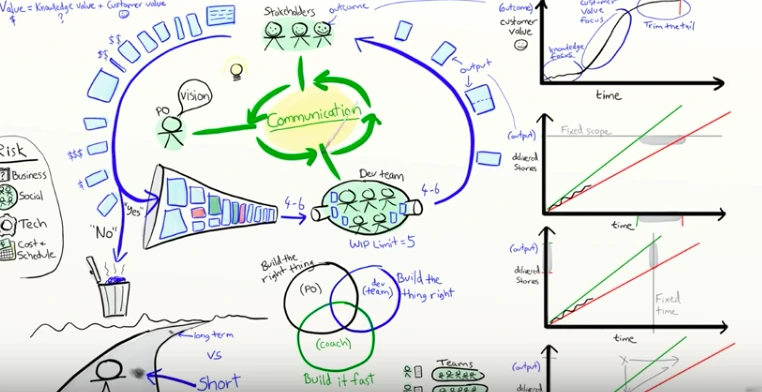 Value = Knowledge value + Customer value
$
?
$$
$$
$$$
$
Stakeholders
outcome
PO
vision
Communication
output
Dev team
"Yes"
4-6
4-6
WIP Limit = 5
"No"
Risk
Business
Social
Tech
Cost &
Schedule
Build the
right thing
(PO)
dev
(team)
Build the
thing right
(coach)
Build it fast
long term
VS
Short
Teams
(outcome)
customer
value
knowledge
focus
customer
value
focus
Trim the tail
time
(output)
delivered
stories
Fixed scope
time
(output)
delivered
stories
Fixed
time
time
(output)